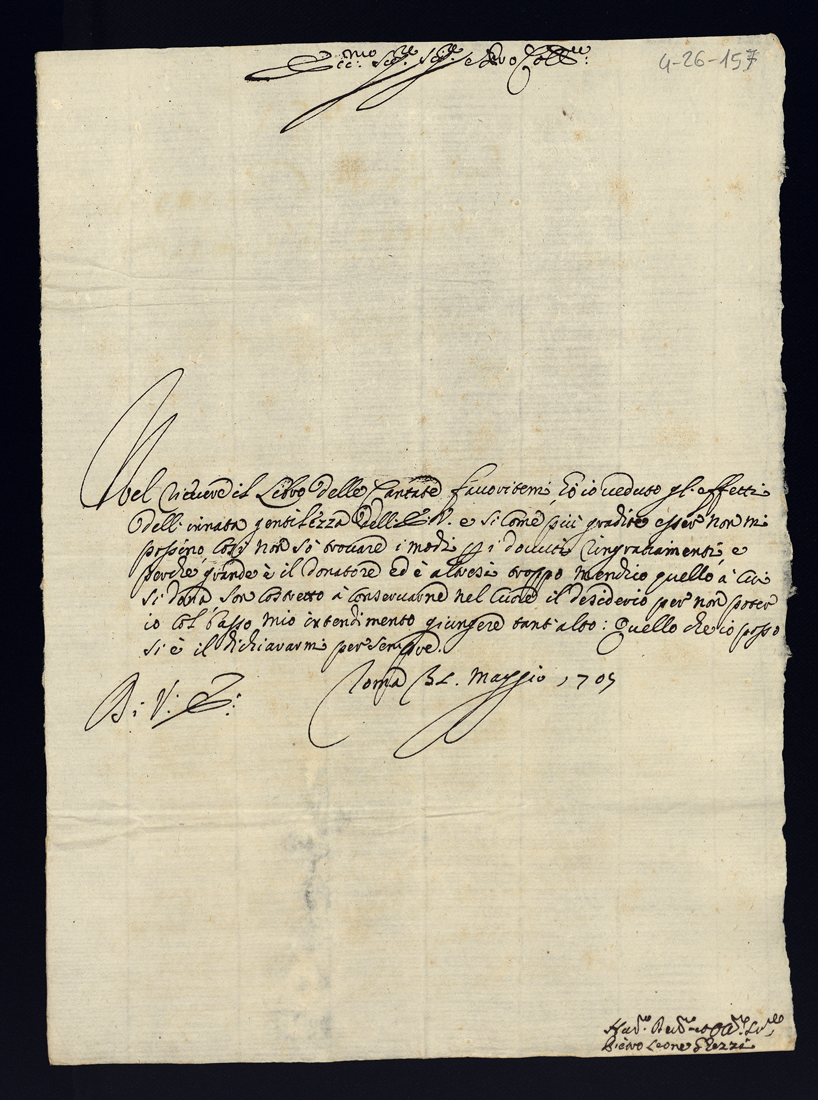 Ecc.mo Sig.re Sig.re e Pro Coll.mo
4-26-157
Nel ricevere il Libro delle Cantate favoritemi, hò io veduto gl'effetti
dell'innata gentilezza dell'E.V. e si come più gradite esser non mi
possino, così non sò trovare i modi p i dovuti ringratiamenti, e
perche grande è il donatore ed è altresi troppo mendico quello à cui
si dona son costretto à conservarne nel cuore il desiderio per non poter
io col basso mio intendimento giungere tant'alto: Quello che io posso
si è il dichiararmi per sempre.
Di V. E.
Roma Maggio 1705
Pietro Leone Ghezzi